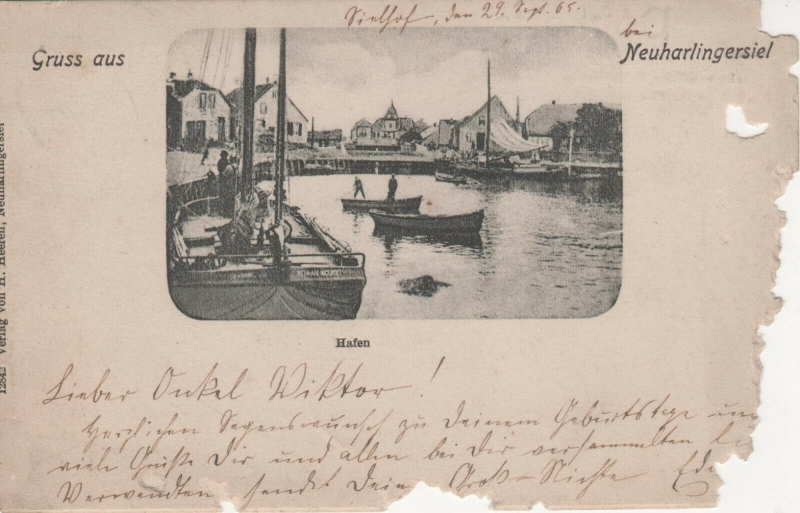 Sielhof, den 29. Sept. 05.
Gruss aus
bei
Neuharlingersiel
12842 Verlag von H. Heeren, Neuharlingersiel
Hafen
Lieber Onkel Viktor!
Herzlichen Segenswunsch zu Deinem Geburtstage un
viele Grüße Dir und allen bei Dir versammelten
Verwandten sendet Deine Groß-Nichte